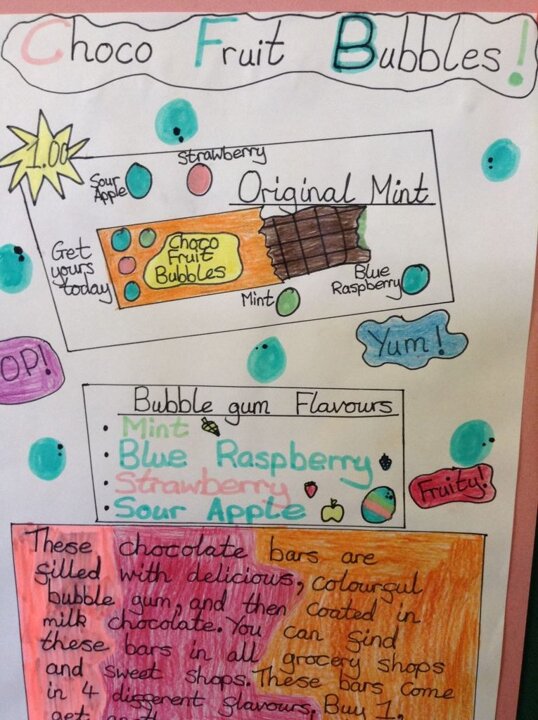 Choco Fruit Bubbles!
1.00
Strawberry
Sour
Apple
Original Mint
Get
yours
today
Choco
Fruit
Bubbles
Blue
Raspberry
Mint
OP!
Yum!
Bubble gum Flavours
• Mint
• Blue Raspberry
• Strawberry
• Sour Apple
Fruity!
These chocolate bars are
filled with delicious, colourful
bubble gum, and then coated in
milk chocolate. You can find
these bars in all grocery shops
and sweet shops. These bars come
in 4 different flavours. Buy 1,
get